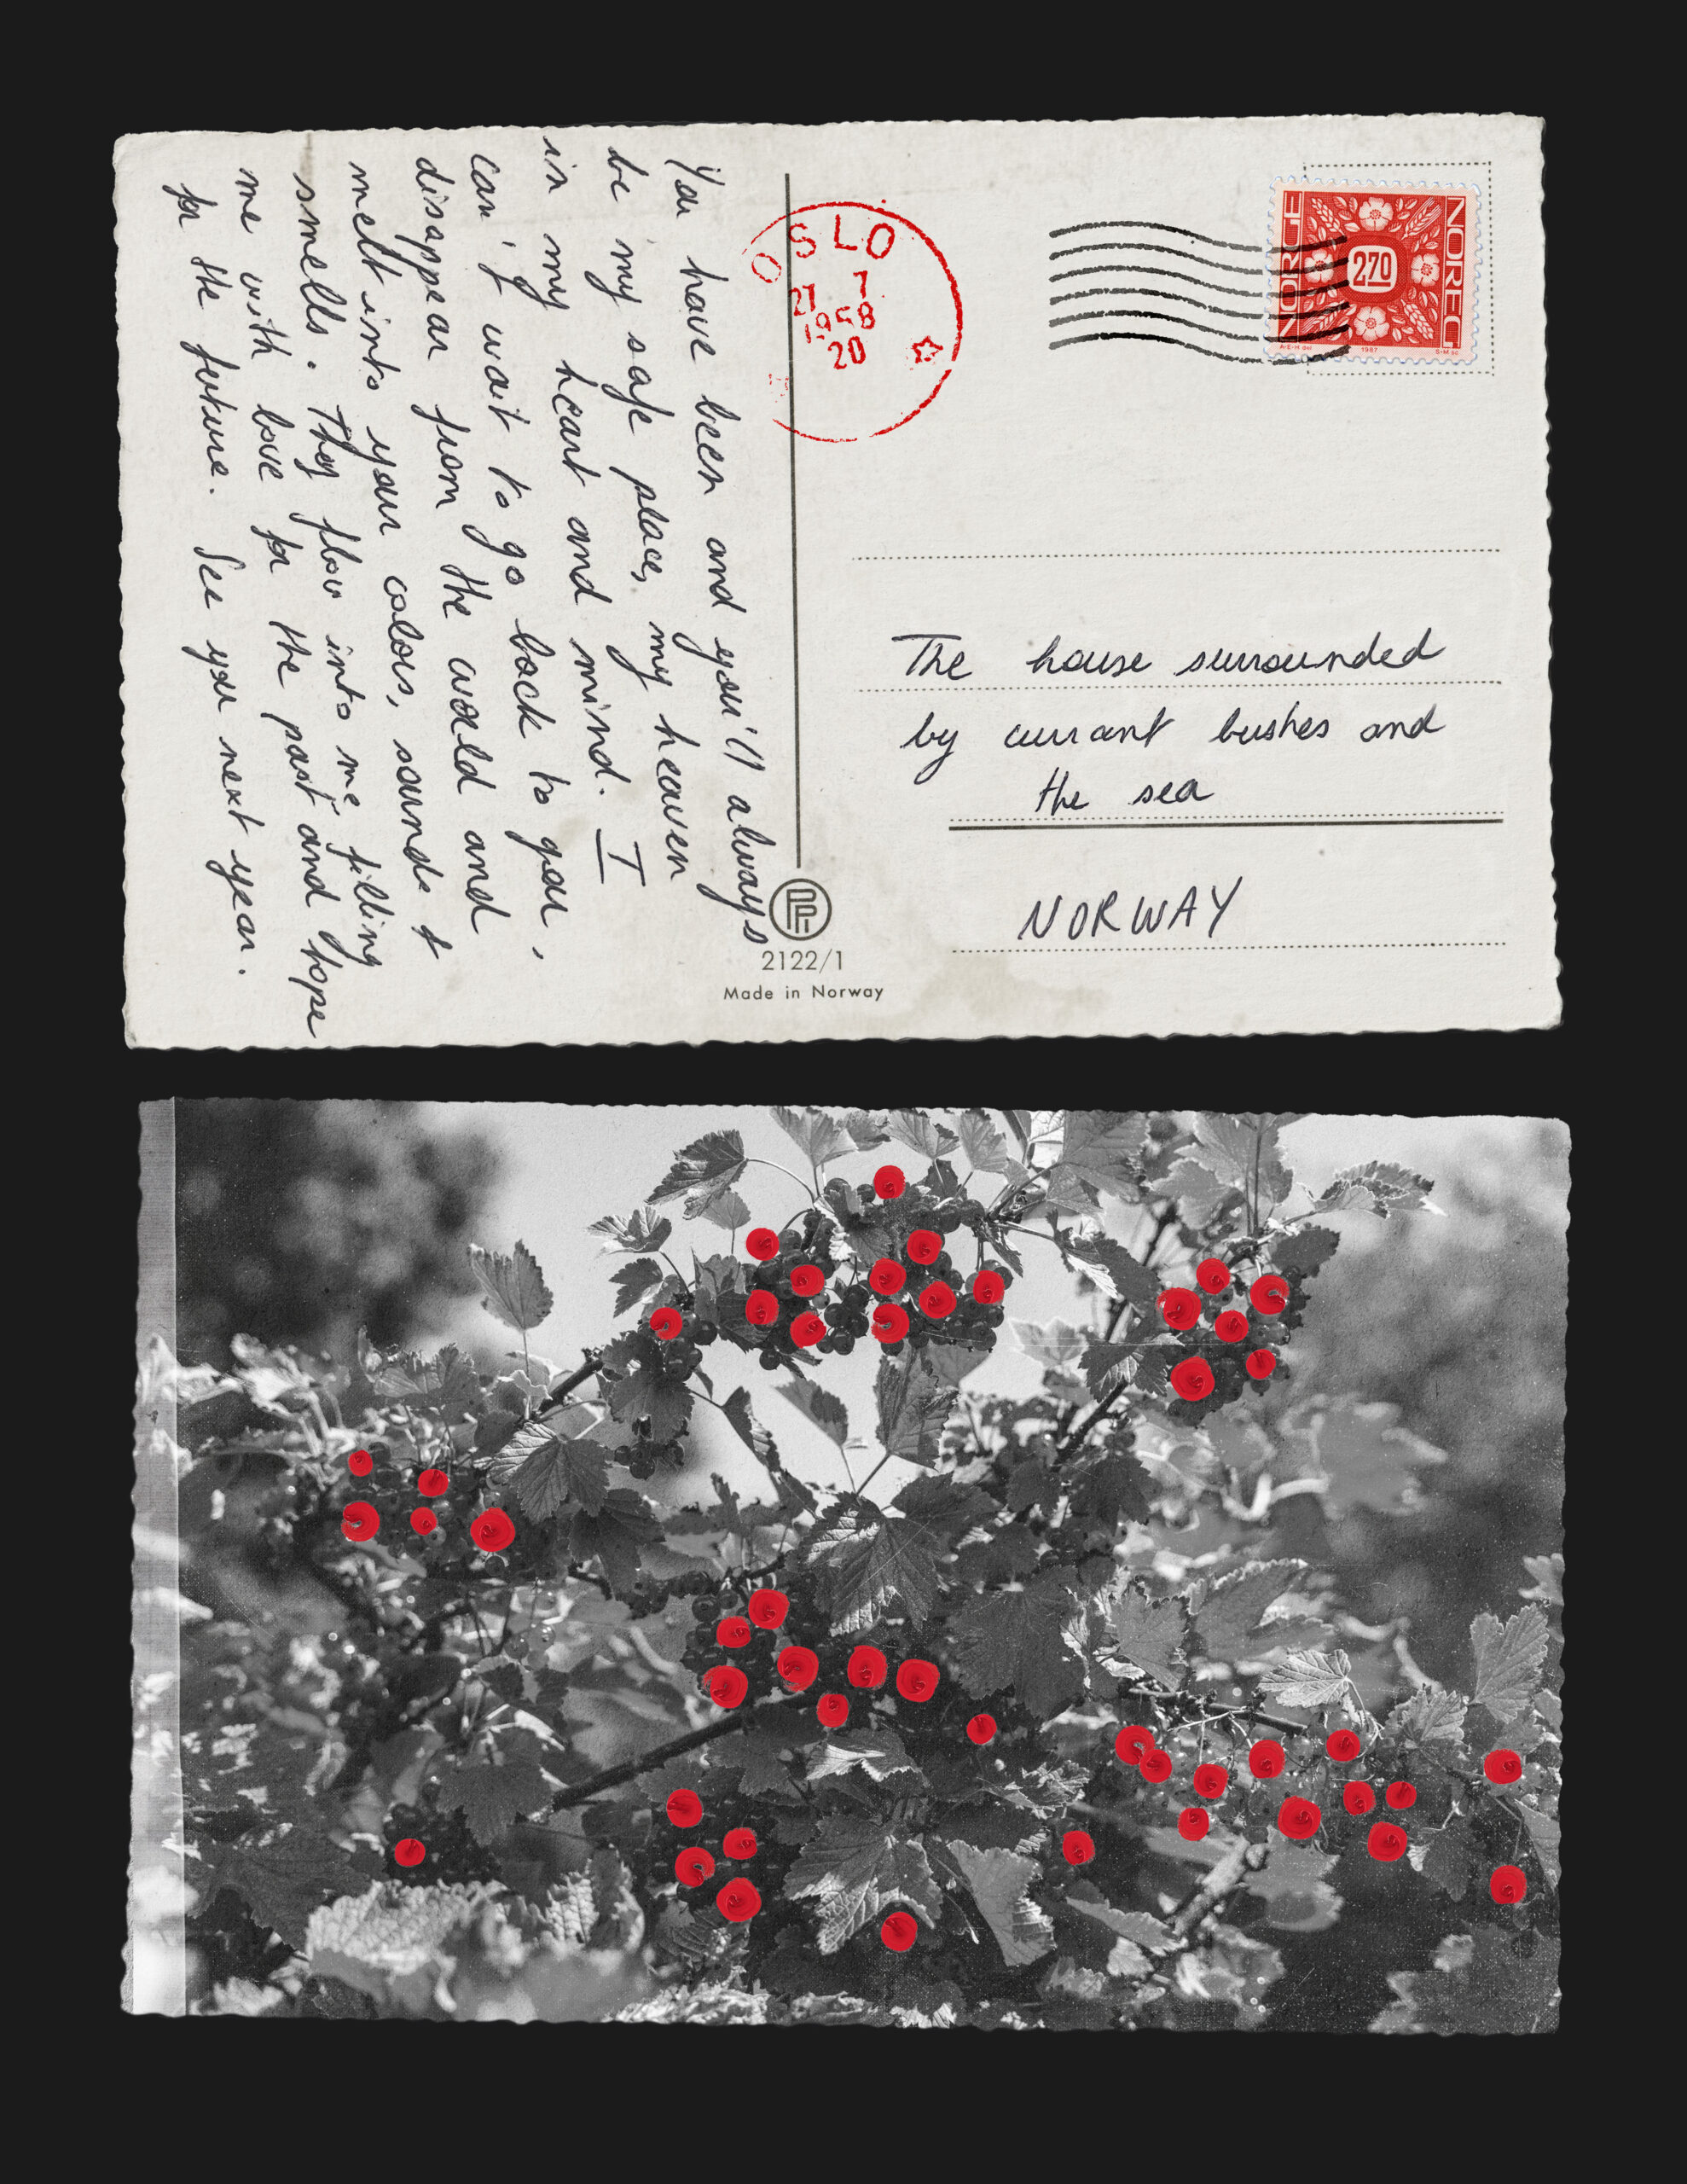 You have been and you'll always
be my safe place, my heaven
in my heart and mind. I
can't wait to go back to you,
disappear from the world and
melt into your colors, sounds &
smells. They flow into me, filling
me with love for the past and hope
for the future. See you next year.
OSLO
7
1958
20
NORGE
270
NOREG
1987
S-M sc
The house surrounded
by currant bushes and
the sea
NORWAY
2122/1
Made in Norway